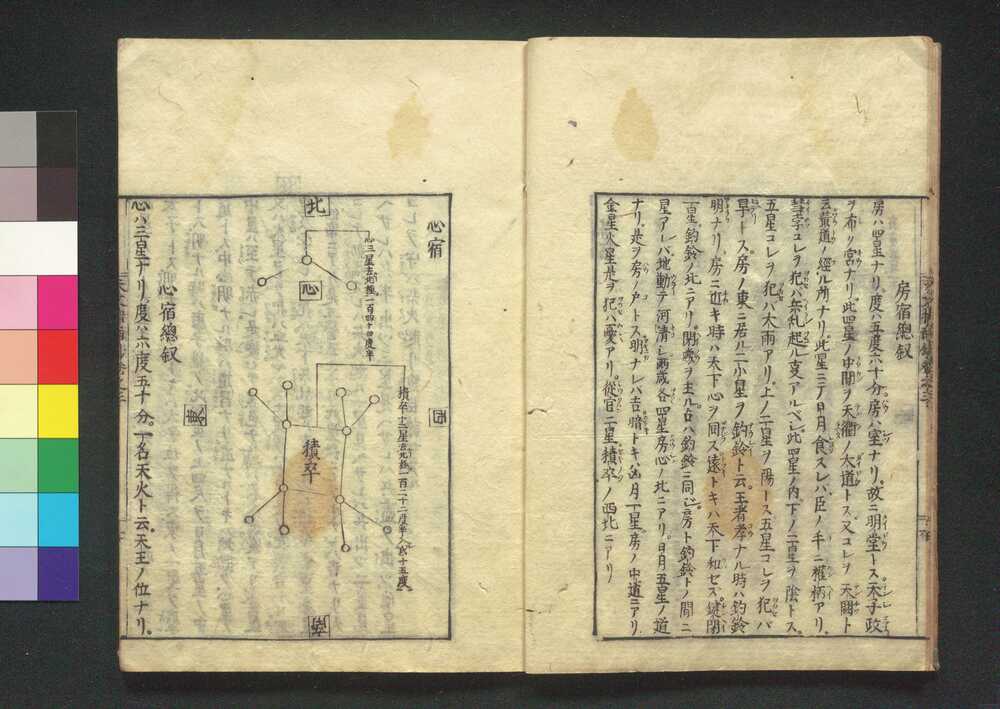 房宿總叙
房ハ四星ナリ。度ハ五度六十分。房ハ室ナリ。故ニ明堂トス天子政
ヲ布ク宮ナリ。此四星ノ中間ヲ天衢ノ大道トス又コレヲ天闕ト
云黄道ノ經ル所ナリ此星ニテ日月食スレバ、臣ノ手ニ權柄アリ。
彗孛コレヲ犯バ兵乱起ル支アルベシ此四星ノ内下ノ二星ヲ陰トス。
五星コレヲ犯バ大雨アリ上ノ二星ヲ陽トス五星コレヲ犯バ
旱トス房ノ東ニ居ル二小星ヲ鈎鈐ト云。王者孝ナル時ハ鈎鈐
明ナリ。房ニ近キ時ハ天下心ヲ同ス遠トキハ天下和セズ。鍵閉
一星。鈎鈐ノ北ニアリ。関
星アレバ地動テ河清シ両咸各四星房心ノ北ニアリ。日月五星ノ道
ナリ。是ヲ房ノ戸トス明ナレバ吉暗トキハ凶日一星房ノ中道ニアリ
金星火星是ヲ犯バ憂アリ。從官二星積卒ノ西北ニアリ
心宿
北
心三星去北極一百四十四度半
心
西
積卒十二星去北極一百二十二度半入氐十五度
積卒
東
南
心宿總叙
心ハ三星ナリ。度ハ六度五十分。一名天火ト云。天王ノ位ナリ。